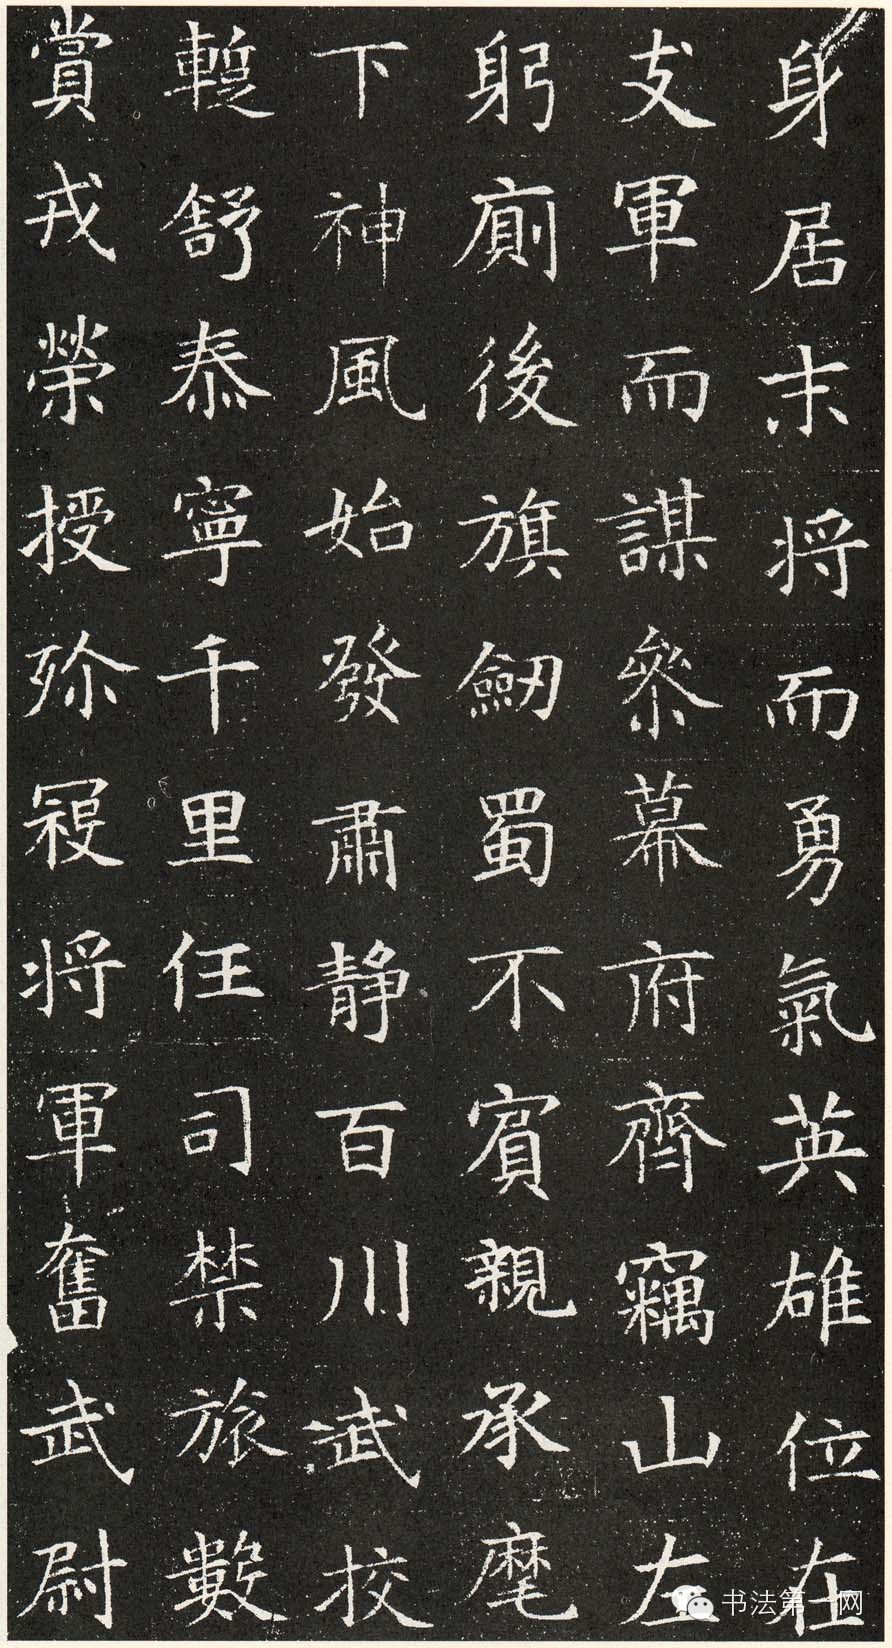 身居末將而勇氣英雄位在
支軍而謀參幕府齊竊山左
躬廁後旗劒蜀不賓親承麾
下神風始發肅静百川武校
蹔舒泰寧千里任司禁旅數
賞戎榮授弥冦将軍奮武尉
书法第一网